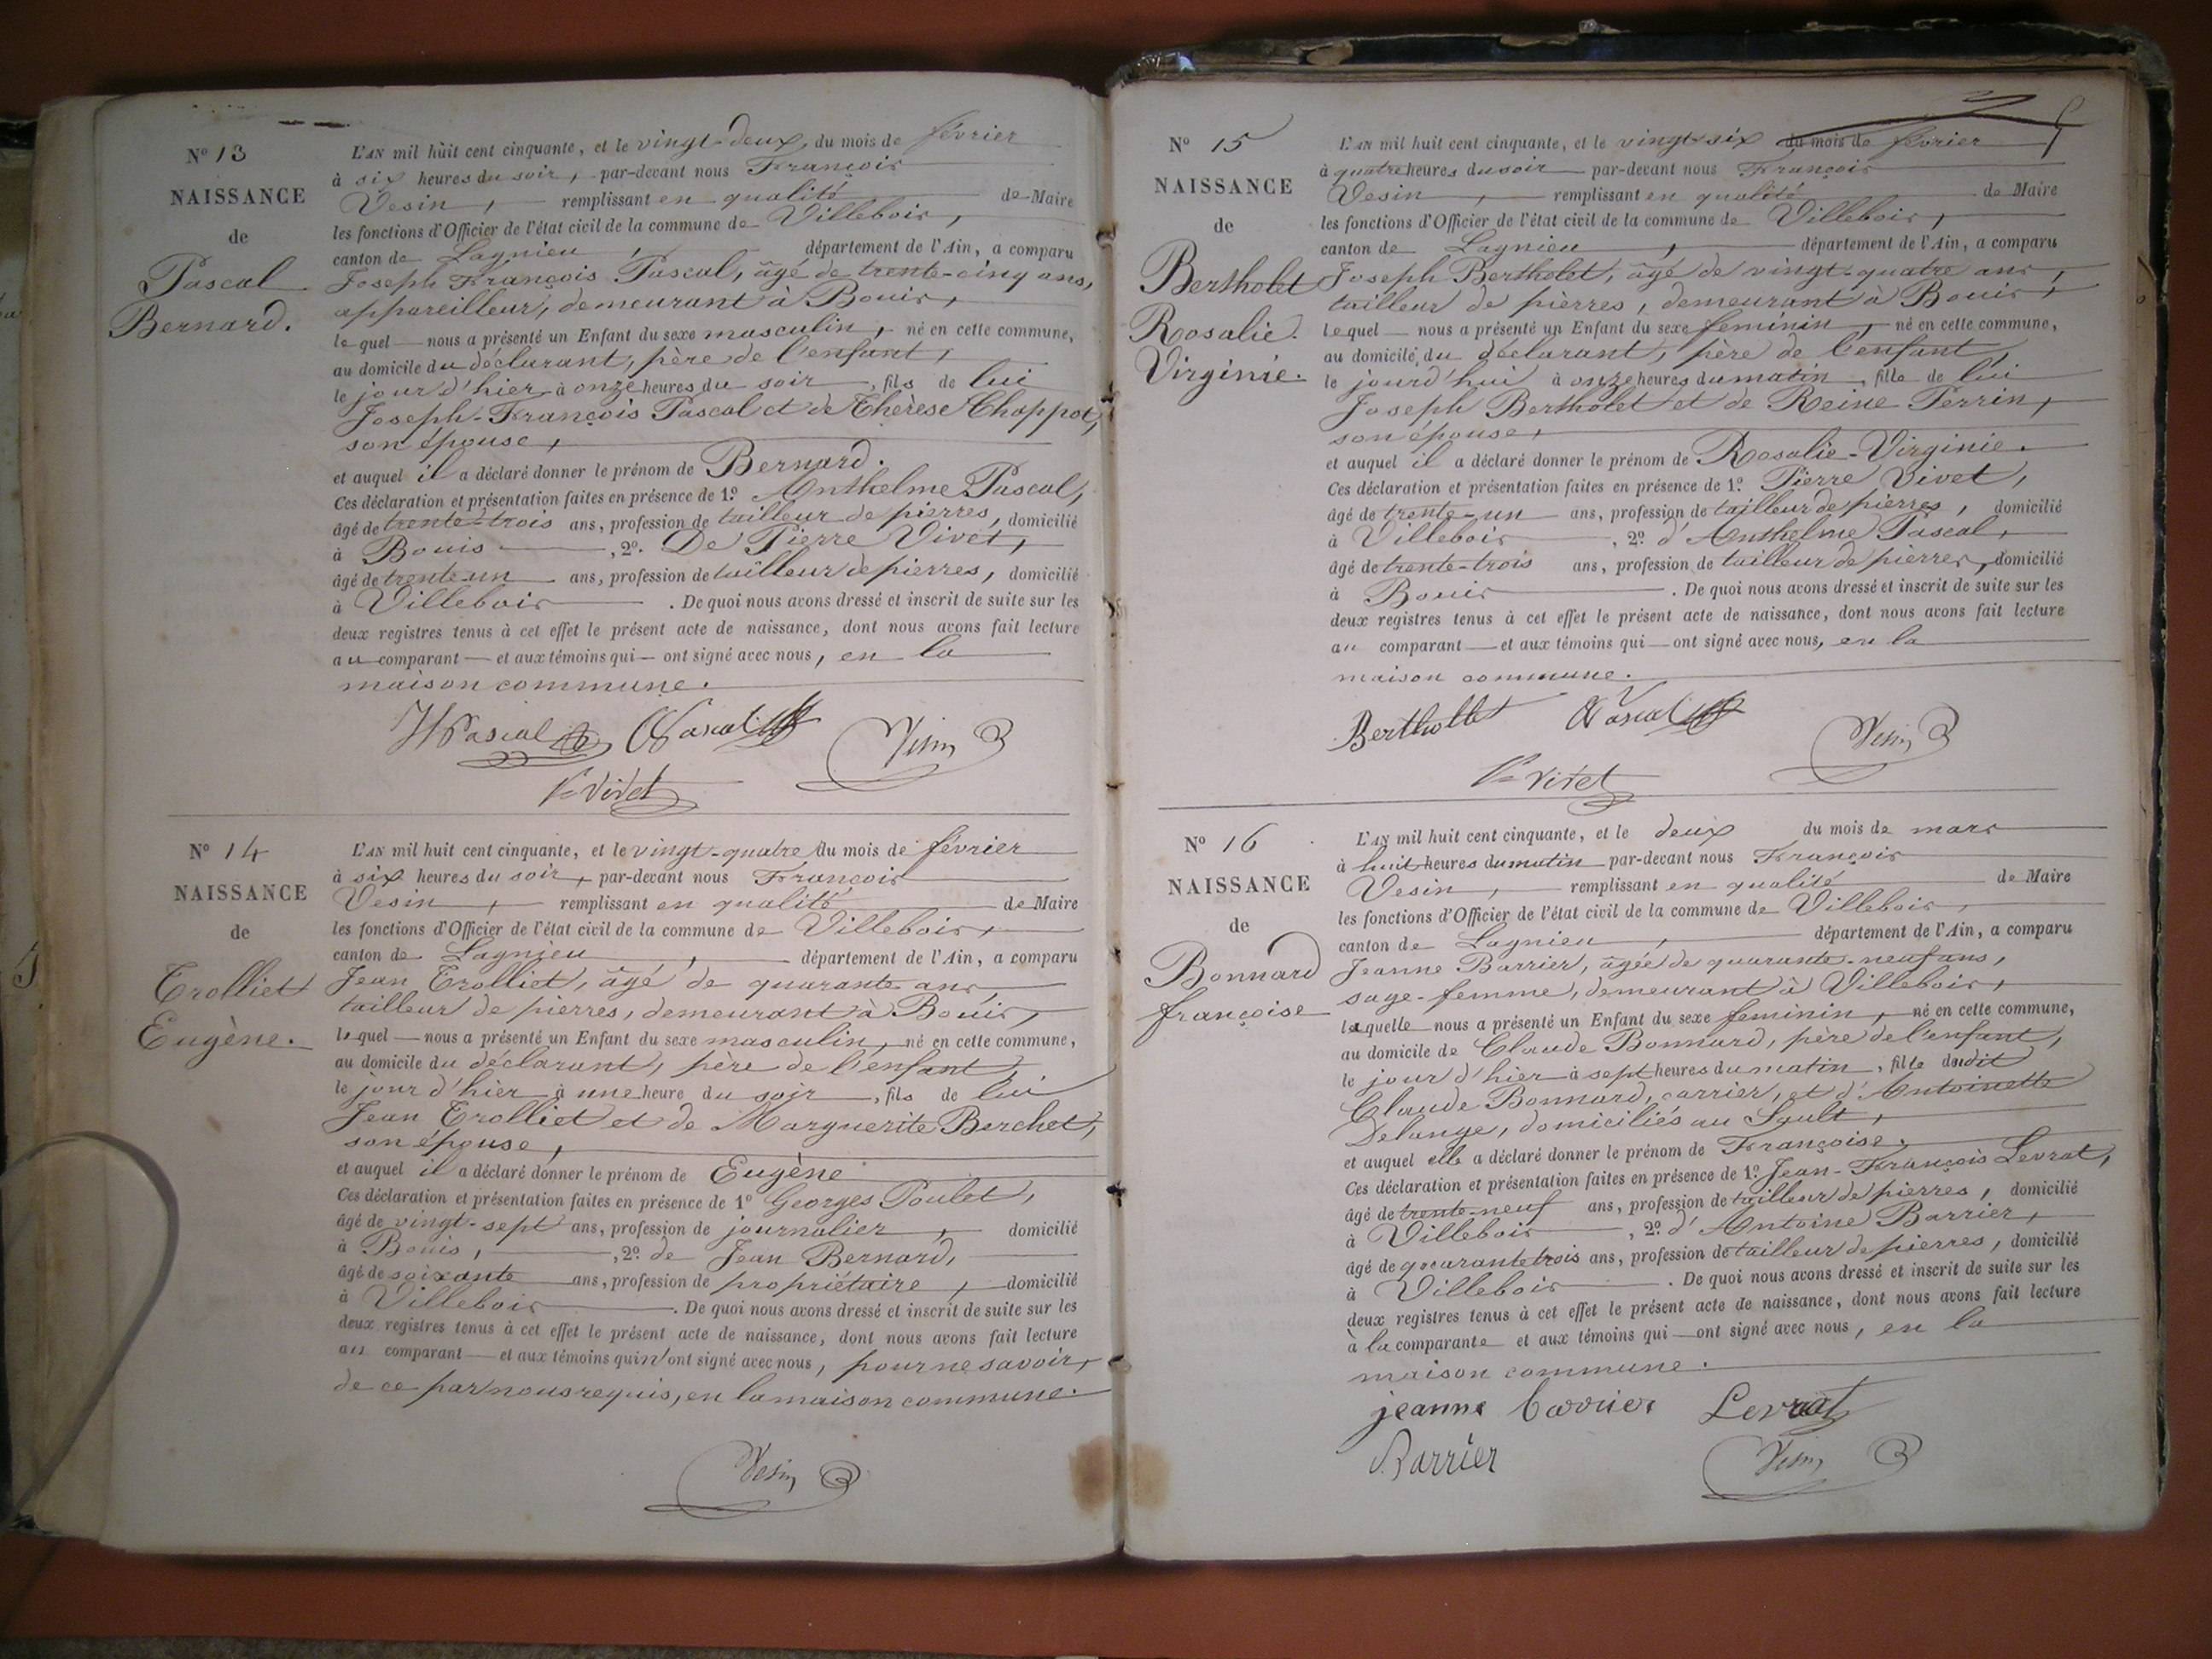 N° 13
NAISSANCE
de
Pascal
Bernard.
L'AN mil huit cent cinquante, et le vingt-deux, du mois de février
à six heures du soir, par-devant nous François
Vesin, remplissant en qualité de Maire
les fonctions d'Officier de l'état civil de la commune de Villebois,
canton de Lagnieu, département de l'Ain, a comparu
Joseph François Pascal, âgé de trente-cinq ans,
appareilleur, demeurant à Bouis,
lequel nous a présenté un Enfant du sexe masculin, né en cette commune,
au domicile du déclarant, père de l'enfant,
le jour d'hier à onze heures du soir, fils de lui
Joseph-François Pascal et de Thérèse Chappot,
son épouse,
et auquel il a déclaré donner le prénom de Bernard.
Ces déclaration et présentation faites en présence de 1° Anthelme Pascal,
âgé de trente-trois ans, profession de tailleur de pierres, domicilié
à Bouis, 2°. De Pierre Vivet,
âgé de trente-un ans, profession de tailleur de pierres, domicilié
à Villebois. De quoi nous avons dressé et inscrit de suite sur les
deux registres tenus à cet effet le présent acte de naissance, dont nous avons fait lecture
au comparant et aux témoins qui ont signé avec nous, en la
maison commune.
Pascal Pascal Vesin
Vivet
N° 14
NAISSANCE
de
Trolliet
Eugène.
L'AN mil huit cent cinquante, et le vingt-quatre du mois de février
à six heures du soir, par-devant nous François
Vesin, remplissant en qualité de Maire
les fonctions d'Officier de l'état civil de la commune de Villebois,
canton de Lagnieu, département de l'Ain, a comparu
Jean Trolliet, âgé de quarante ans,
tailleur de pierres, demeurant à Bouis,
lequel nous a présenté un Enfant du sexe masculin, né en cette commune,
au domicile du déclarant, père de l'enfant,
le jour d'hier à une heure du soir, fils de lui
Jean Trolliet et de Marguerite Berchet,
son épouse,
et auquel il a déclaré donner le prénom de Eugène
Ces déclaration et présentation faites en présence de 1° Georges Poulet,
âgé de vingt-sept ans, profession de journalier, domicilié
à Bouis, 2°. de Jean Bernard,
âgé de soixante ans, profession de propriétaire, domicilié
à Villebois. De quoi nous avons dressé et inscrit de suite sur les
deux registres tenus à cet effet le présent acte de naissance, dont nous avons fait lecture
au comparant et aux témoins qui n'ont signé avec nous, pour ne savoir,
de ce par nous requis, en la maison commune.
Vesin
N° 15
NAISSANCE
de
Bertholet
Rosalie
Virginie.
L'AN mil huit cent cinquante, et le vingt-six du mois de février
à quatre heures du soir par-devant nous François
Vesin, remplissant en qualité de Maire
les fonctions d'Officier de l'état civil de la commune de Villebois,
canton de Lagnieu, département de l'Ain, a comparu
Joseph Bertholet, âgé de vingt-quatre ans,
tailleur de pierres, demeurant à Bouis,
lequel nous a présenté un Enfant du sexe feminin, né en cette commune,
au domicile du déclarant, père de l'enfant,
le jourd'hui à onze heures du matin, fille de lui
Joseph Bertholet et de Reine Perrin,
son épouse,
et auquel il a déclaré donner le prénom de Rosalie-Virginie.
Ces déclaration et présentation faites en présence de 1°. Pierre Vivet,
âgé de trente-un ans, profession de tailleur de pierres, domicilié
à Villebois, 2°. d'Anthelme Pascal,
âgé de trente-trois ans, profession de tailleur de pierres, domicilié
à Bouis. De quoi nous avons dressé et inscrit de suite sur les
deux registres tenus à cet effet le présent acte de naissance, dont nous avons fait lecture
au comparant et aux témoins qui ont signé avec nous, en la
maison commune.
Berthollet Pascal Vesin
Vivet
N° 16
NAISSANCE
de
Bonnard
françoise
L'AN mil huit cent cinquante, et le deux du mois de mars
à huit heures du matin par-devant nous François
Vesin, remplissant en qualité de Maire
les fonctions d'Officier de l'état civil de la commune de Villebois,
canton de Lagnieu, département de l'Ain, a comparu
Jeanne Barrier, âgée de quarante-neuf ans,
sage-femme, demeurant à Villebois,
laquelle nous a présenté un Enfant du sexe feminin, né en cette commune,
au domicile de Claude Bonnard, père de l'enfant,
le jour d'hier à sept heures du matin, fille dudit
Claude Bonnard, carrier, et d'Antoinette
Delange, domiciliés au Sault,
et auquel elle a déclaré donner le prénom de Françoise.
Ces déclaration et présentation faites en présence de 1°. Jean-François Levrat,
âgé de trente-neuf ans, profession de tailleur de pierres, domicilié
à Villebois, 2°. d'Antoine Barrier,
âgé de quarante trois ans, profession de tailleur de pierres, domicilié
à Villebois. De quoi nous avons dressé et inscrit de suite sur les
deux registres tenus à cet effet le présent acte de naissance, dont nous avons fait lecture
à la comparante et aux témoins qui ont signé avec nous, en la
maison commune.
jeanne barrier Levrat
Barrier Vesin